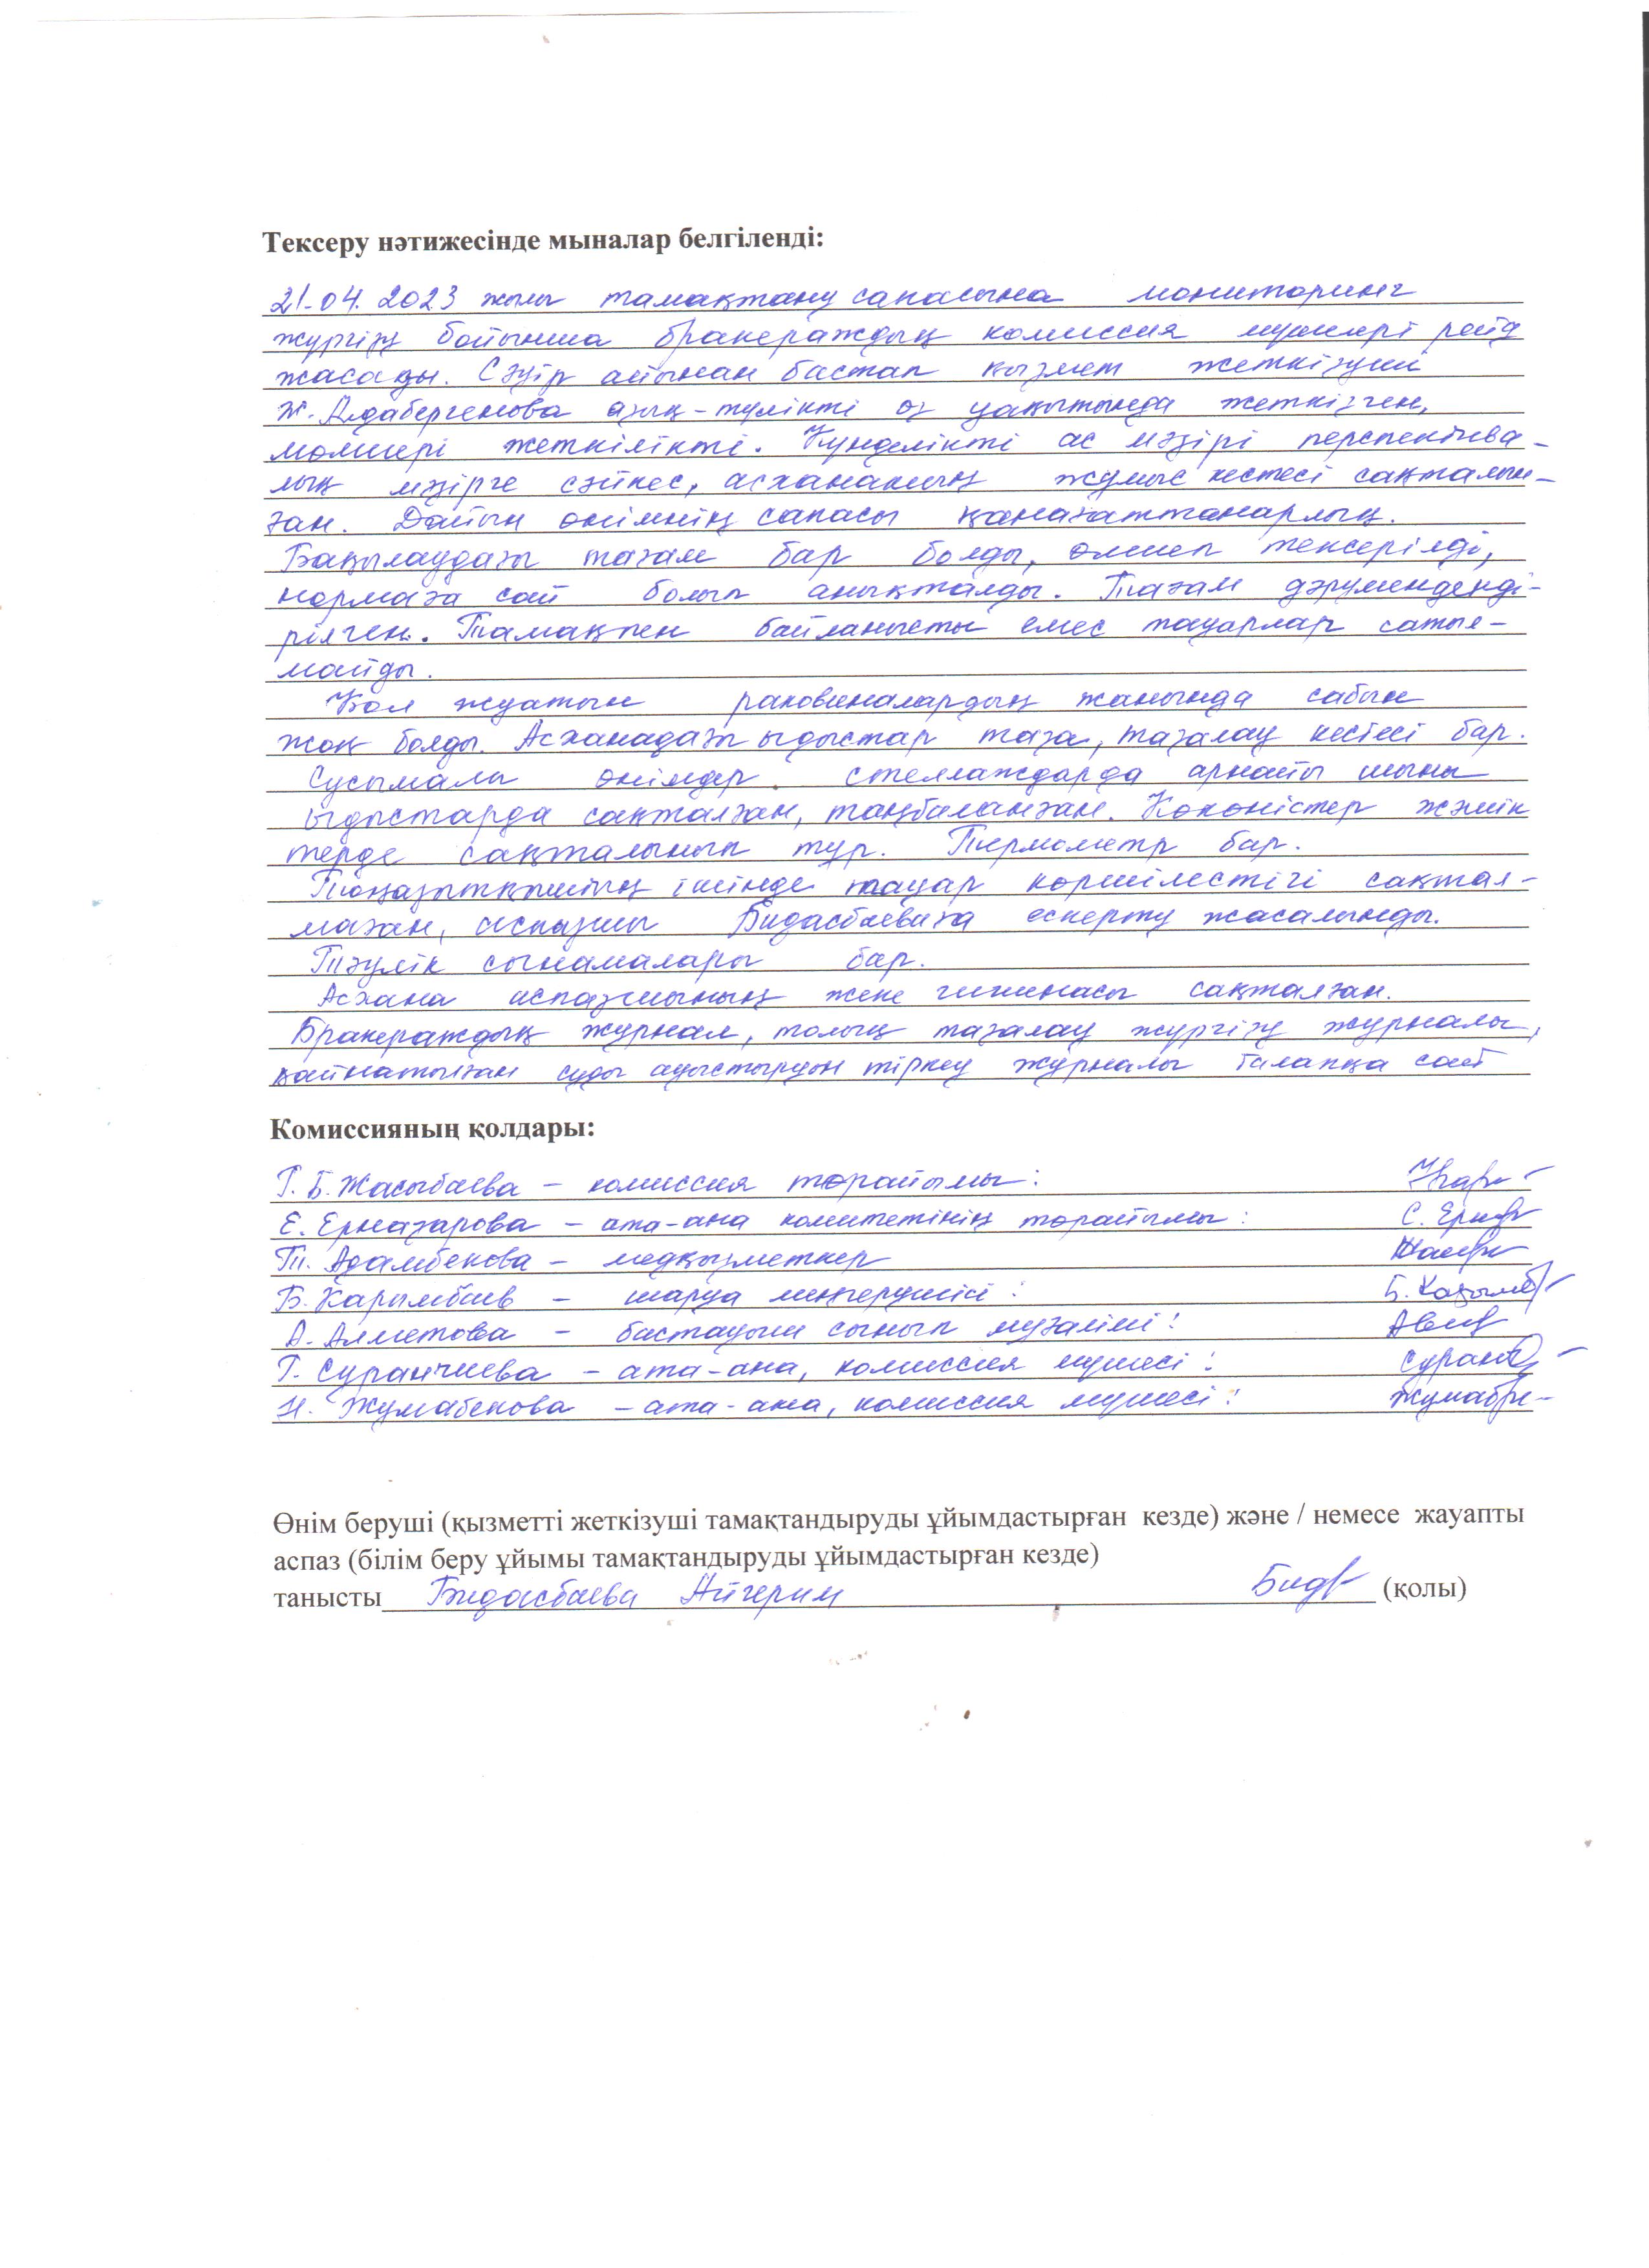 Тексеру нәтижесінде мыналар белгіленді:
21.04.2023 жылы тамақтану сапасына мониторинг
жүргізу бойынша бракераждың комиссия мүшелері рейд
жасады. Сәуір айынан бастап қызмет жеткізуші
Ж. Алдабергенова азық-түлікті өз уақытында жеткізген,
мөлшері жеткілікті. Күнделікті ас мәзірі перспектива-
лық мәзірге сәйкес, асхананың жұмыс кестесі сақталын-
ған. Дайын өнімнің сапасы қанағаттанарлық.
Бақылаудағы тағам бар болды, өлшеп тексерілді,
нормаға сай болып анықталды. Тағам дәрумендендi-
рілген. Тамақпен байланысты емес тауарлар сатыл-
майды.
Қол жуатын раковиналардың жанында сабын
жоқ болды. Асханадағы ыдыстар таза, тазалау кестесі бар.
Сусымалы өнімдер стеллаждарда арнайы шыны
ыдыстарда сақталған, таңбаланған. Көкөністер жәшік
терде сақталынып тұр. Термометр бар.
Тоңазытқыштың ішінде тауар көршілестігі сақтал-
маған, аспазшы Бидасбаеваға ескерту жасалынды.
Тәулік сынамалары бар.
Асхана аспазшының жеке гигиенасы сақталған.
Бракераждық журнал, толық тазалау жүргізу журналы,
қайнатылған суды ауыстыруын тіркеу журналы талапқа сай
Комиссияның қолдары:
Г. Б. Жасыбаева – комиссия төрайымы:
Е. Ерназарова – ата-ана комитетінің төрайымы: С. Ерн
Т. Адамбекова – медқызметкер
Б. Карымбаев – шаруа меңгерушісі:
А. Алметова – бастауыш сынып мұғалімі:
Г. Суранчиева – ата-ана, комиссия мүшесі: Суран
Н. Жумабекова – ата-ана, комиссия мүшесі: Жумабе
Өнім беруші (қызметті жеткізуші тамақтандыруды ұйымдастырған кезде) және / немесе жауапты
аспаз (білім беру ұйымы тамақтандыруды ұйымдастырған кезде)
танысты Бидасбаева Айгерим Бид (қолы)